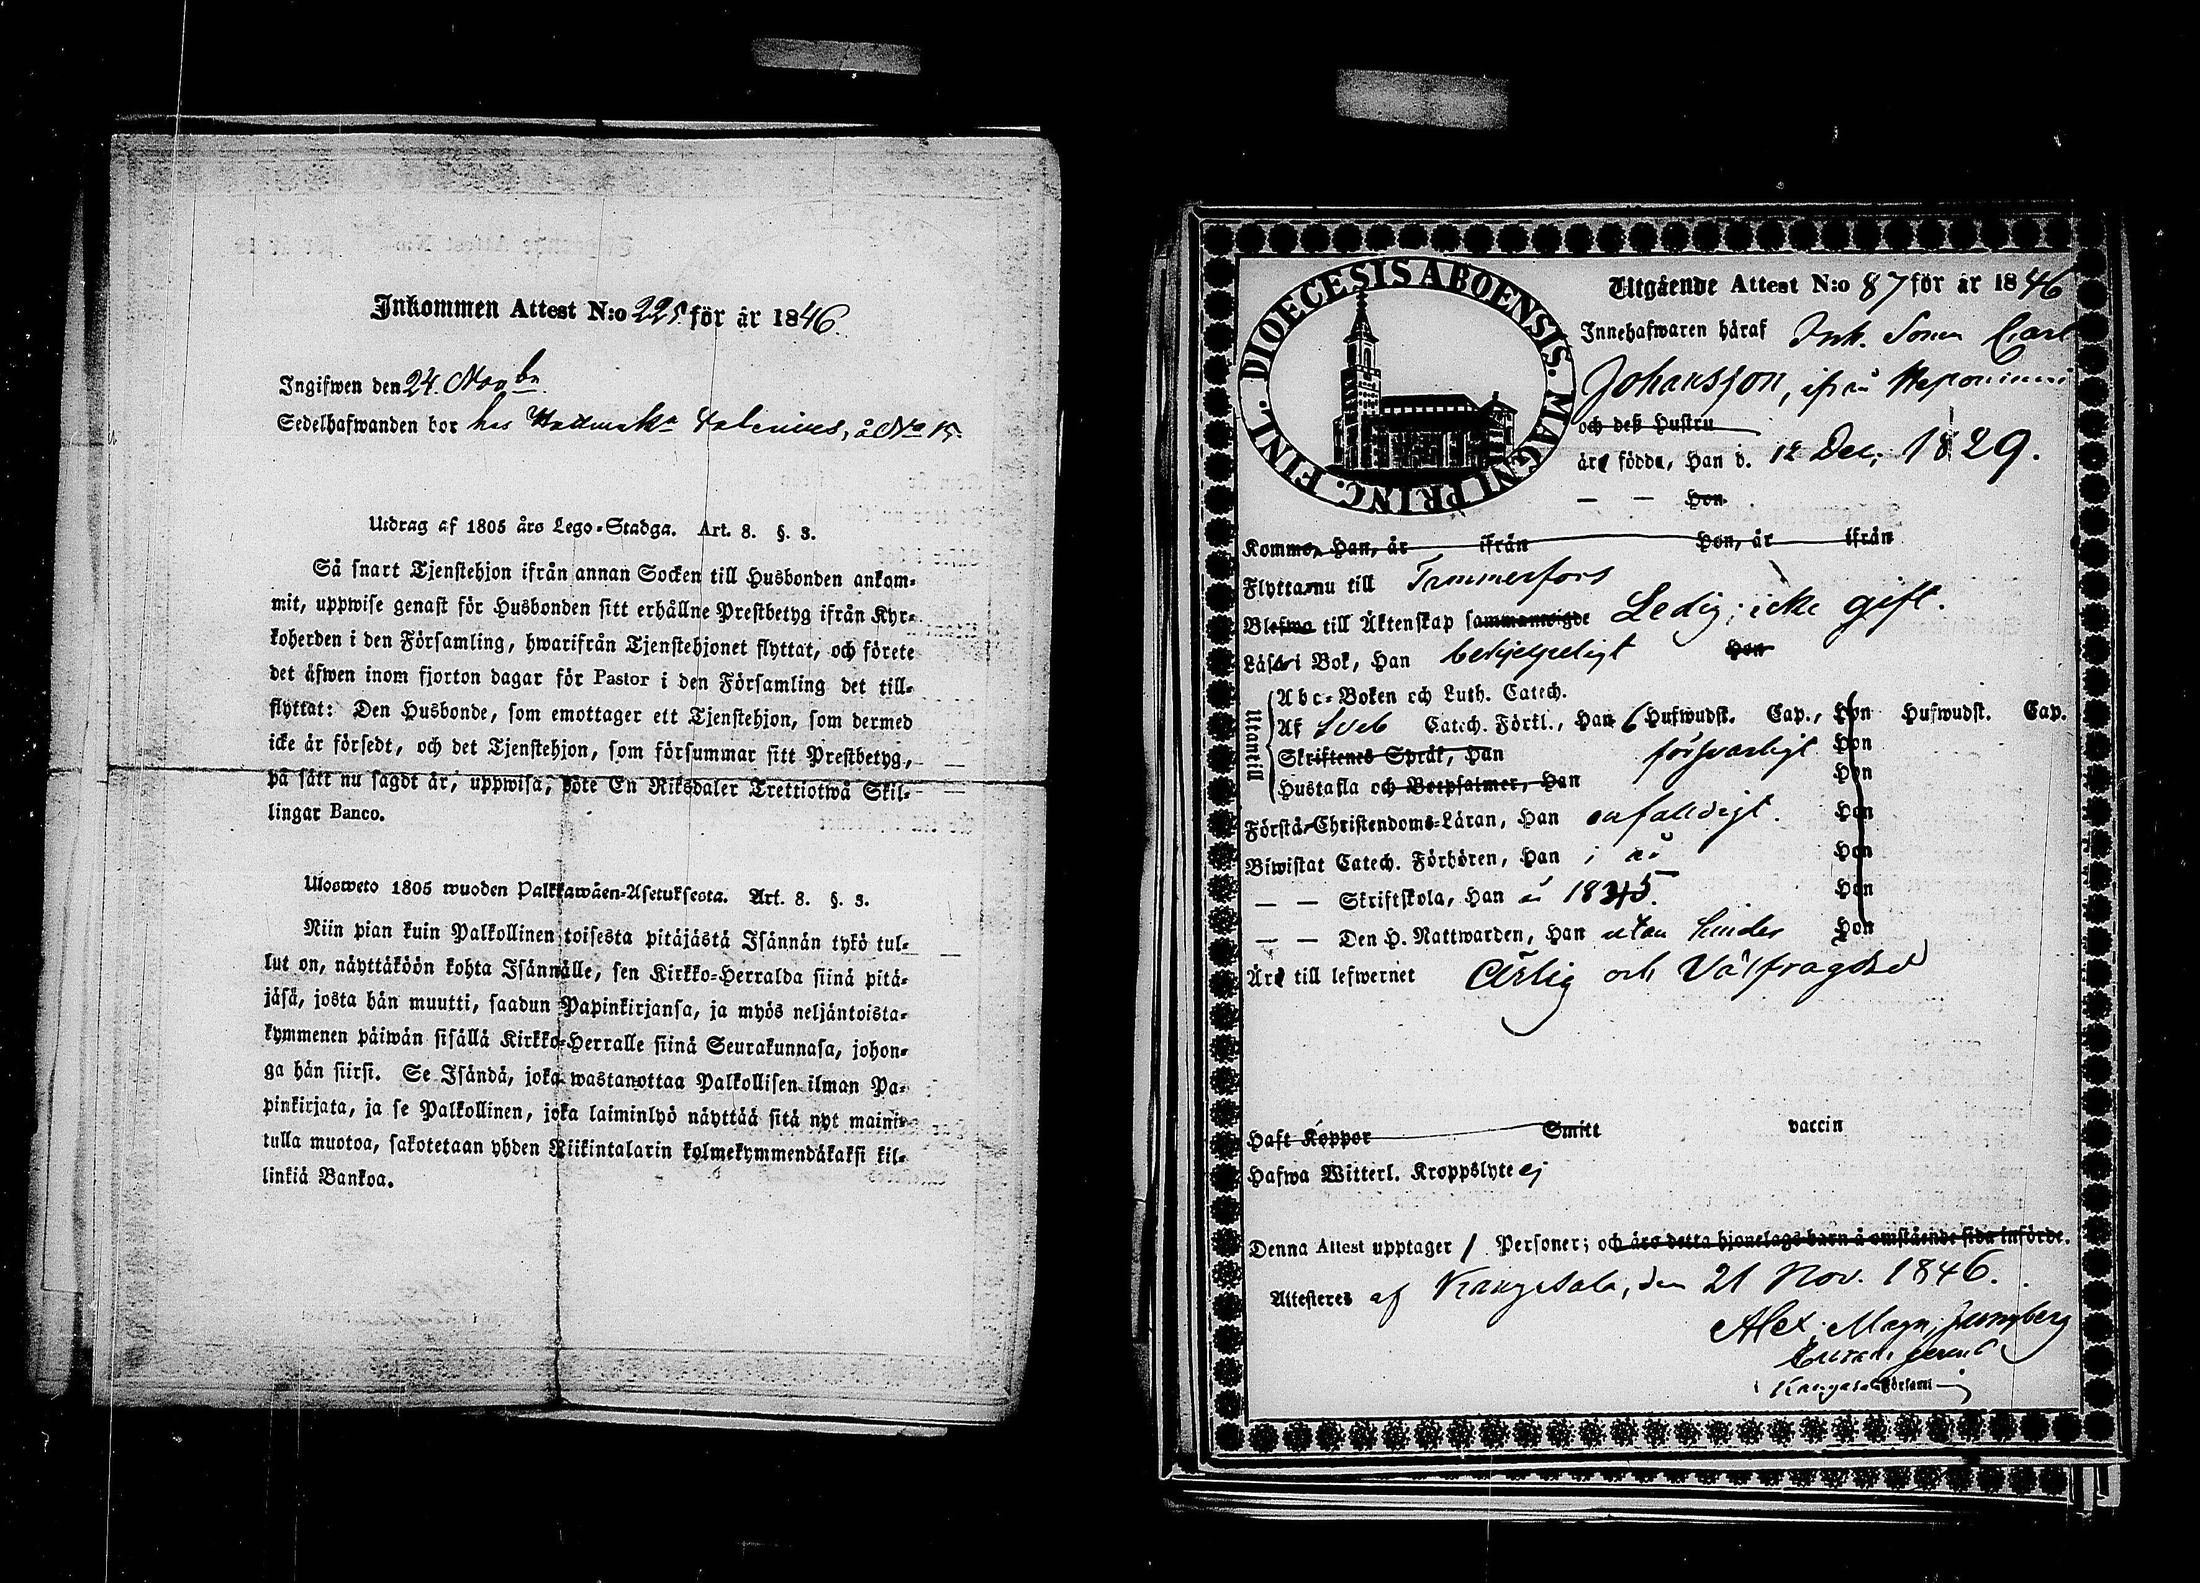 Inkommen Attest N:o 225 för år 1846.
Ingifwen den 24. Novbr
Sedelhafwanden bor hos å No 15.
Utdrag af 1805 års Lego-Stadga. Art. 8. §. 3.
Så snart Tjenstehjon ifrån annan Socken till Husbonden ankom-
mit, uppwise genast för Husbonden sitt erhållne Prestbetyg ifrån Kyr-
koherden i den Församling, hwarifrån Tjenstehjonet flyttat, och förete
det äfwen inom fjorton dagar för Pastor i den Församling det till-
flyttat: Den Husbonde, som emottager ett Tjenstehjon, som dermed
icke är försedt, och det Tjenstehjon, som försummar sitt Prestbetyg,
på sätt nu sagdt är, uppwisa, böte En Riksdaler Trettiotwå Skil-
lingar Banco.
Ulosweto 1805 wuoden Palkkawäen-Asetuksesta. Art. 8. §. 3.
Niin pian kuin Palkollinen toisesta pitäjästä Isännän tykö tul-
lut on, näyttäköön kohta Isännälle, sen Kirkko-Herralda siinä pitä-
jäsä, josta hän muutti, saadun Papinkirjansa, ja myös neljäntoista-
kymmenen päiwän sisällä Kirkko-Herralle siinä Seurakunnasa, johon-
ga hän siirsi. Se Isändä, joka wastanottaa Palkollisen ilman Pa-
pinkirjata, ja se Palkollinen, joka laiminlyö näyttää sitä nyt maini-
tulla muotoa, sakotetaan yhden Riikintalarin kolmekymmendäkaksi kil-
linkiä Bankoa.
DIOECESIS ABOENSIS. MAGNI PRINC. FINL.
Utgående Attest N:o 87 för år 1846
Innehafwaren häraf Sonen Carl
Johansson, ifrån
och deß Hustru
äro födde, Han d. 12 Dec. 1829.
— — Hon
Kommo, Han, år ifrån Hon, år ifrån
Flytta nu till Tammerfors
Blefwo till Äktenskap sammanwigde Ledig; icke gift.
Läsa i Bok, Han behjelpeligt Hon
Utantill
Abc-Boken och Luth. Catech.
Af Sveb Catech. Förkl., Han 6 Hufwudst. Cap., Hon Hufwudst. Cap.
Skriftenes Språk, Han försvarligt Hon
Hustafla och Botpsalmer, Han Hon
Förstå Christendoms-Läran, Han enfalldigt. Hon
Biwistat Catech. Förhören, Han Hon
— — Skriftskola, Han 1845. Hon
— — Den H. Nattwarden, Han utan hinder Hon
Äro till lefwernet Ärlig och Välfrägdad
Haft Koppor Smitt vaccin
Hafwa Witterl. Kroppslyte ej
Denna Attest upptager 1 Personer; och äro detta hjonelags barn å omstående sida införde.
Attesteres af Kangasala, den 21 Nov. 1846.
Alex. Magn. Ljungberg
i Kangasala Församl